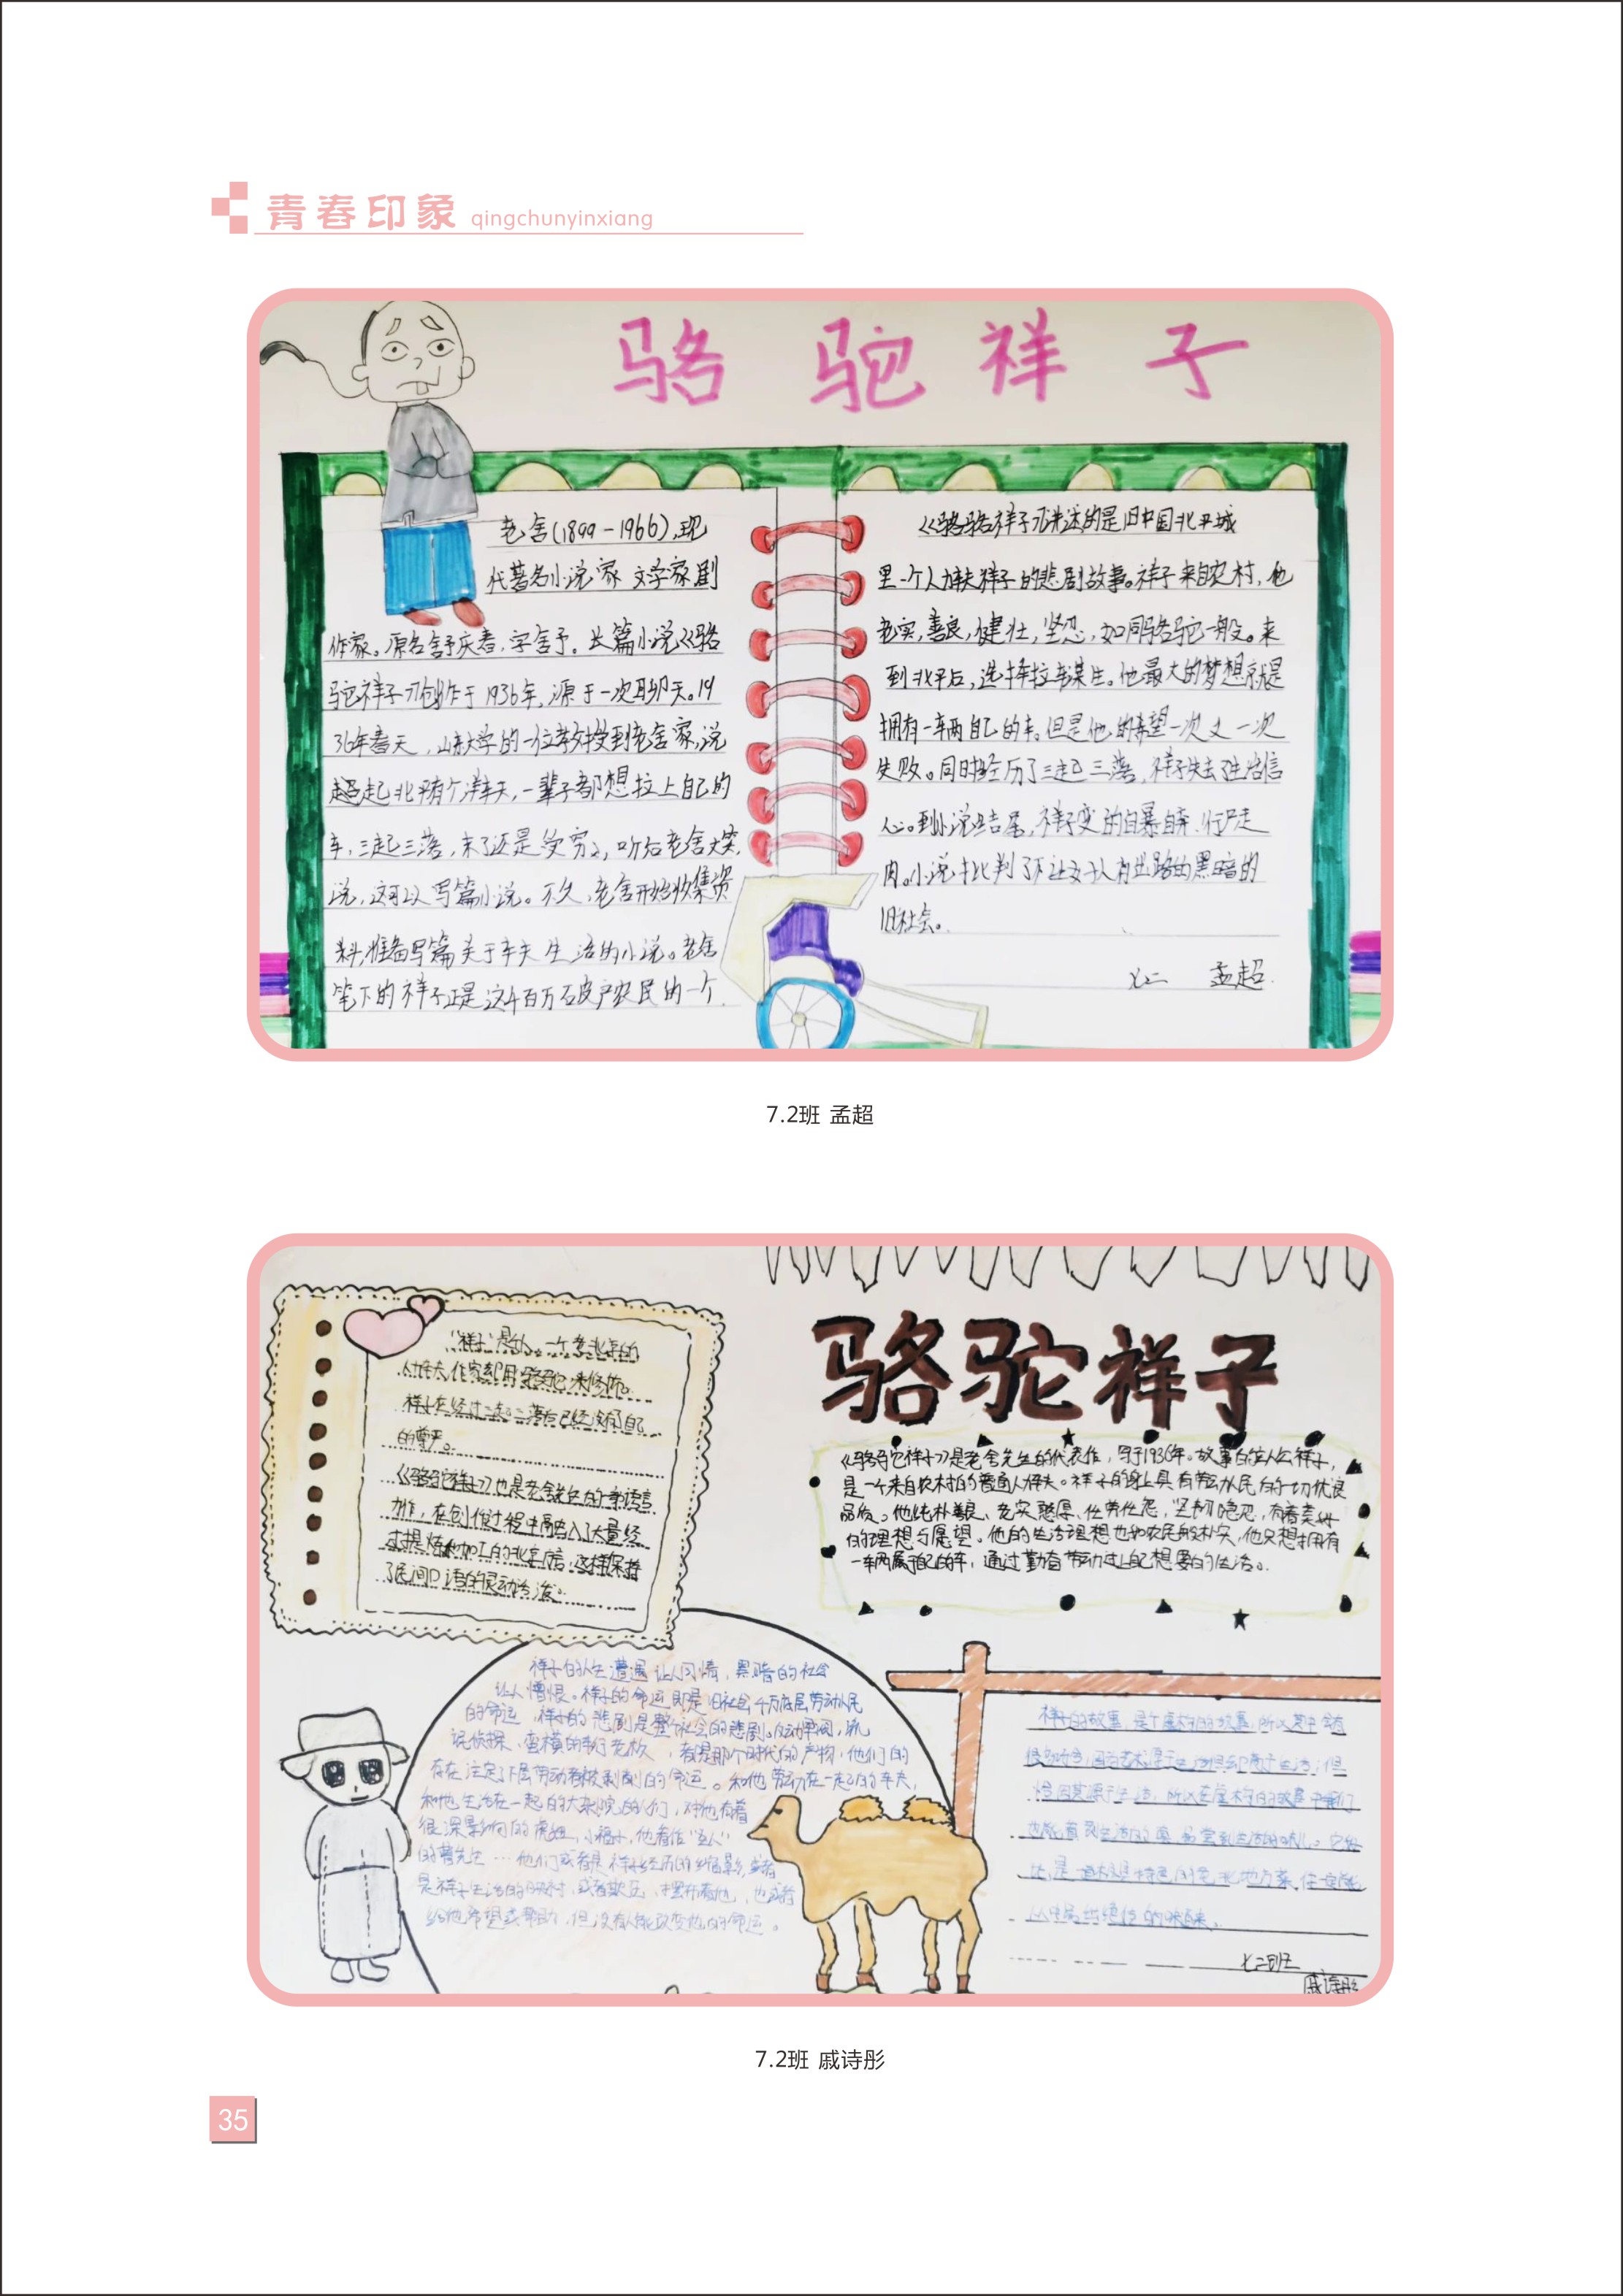 青春印象 qingchunyinxiang
骆驼祥子
老舍(1899-1966),现
代著名小说家 文学家剧
作家。原名舒庆春,字舍予。长篇小说《骆
驼祥子》创作于1936年,源于一次聊天。19
36年春天,山东大学的一位教授到老舍家,说
起北平有个洋车夫,一辈子都想拉上自己的
车,三起三落,末了还是受穷,听后老舍大笑,
说,这可以写篇小说。不久,老舍开始收集资
料,准备写篇关于车夫生活的小说。老舍
笔下的祥子正是这千百万破产农民的一个.
《骆驼祥子》讲述的是旧中国北平城
里一个人力车夫祥子的悲剧故事。祥子来自农村,他
老实,善良,健壮,坚忍,如同骆驼一般。来
到北平后,选择拉车谋生。他最大的梦想就是
拥有一车辆自己的车。但是他的希望一次又一次
失败。同时经历了三起三落,祥子失去了生活信
心。到小说结尾,祥子变的自暴自弃,行尸走
肉。小说批判了不让好人有出路的黑暗的
旧社会。
七二 孟超
7.2班 孟超
骆驼祥子
人力车夫,作家却用骆驼来修饰。
祥子在经过三起三落后已经没有了自己
的尊严。
《骆驼祥子》也是老舍先生的
力作,在创作过程中融入了大量经
过提炼和加工的北京方言,这样保持
了民间口语的灵动与活泼。
《骆驼祥子》是老舍先生的代表作,写于1936年。故事的主人公祥子,
是一个来自农村的普通人力车夫。祥子的身上具有劳动人民的一切优良
品质。他纯朴善良、老实憨厚、任劳任怨,坚韧隐忍,有着美好
的理想与愿望。他的生活理想也如农民般朴实,他只想拥有
一车辆属于自己的车,通过勤奋劳动过上自己想要的生活。
祥子的人生遭遇让人同情,黑暗的社会
让人憎恨。祥子的命运即是旧社会千万底层劳动人民
的命运,祥子的悲剧是整个社会的悲剧。反动军阀,流
氓侦探,蛮横的车行老板,都是那个时代的产物,他们的
存在注定了下层劳动者被剥削的命运。和他劳动在一起的车夫,
和他生活在一起的大杂院的人们,对他有着
很深影响的虎妞,小福子,他看作“圣人”
的曹先生…他们或者是祥子经历的缩影,或者
是祥子生活的映衬,或者欺压、摆布着他,也或者
给他希望或帮助,但没有人能改变他的命运。
祥子的故事,是个虚构的故事,所以其中会有
七二班
戚诗彤
7.2班 戚诗彤
35